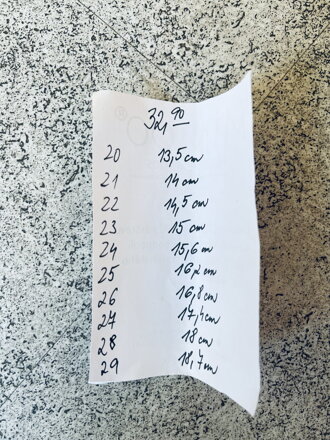 32,90
20 13,5 cm
21 14 cm
22 14,5 cm
23 15 cm
24 15,6 cm
25 16,2 cm
26 16,8 cm
27 17,4 cm
28 18 cm
29 18,7 cm